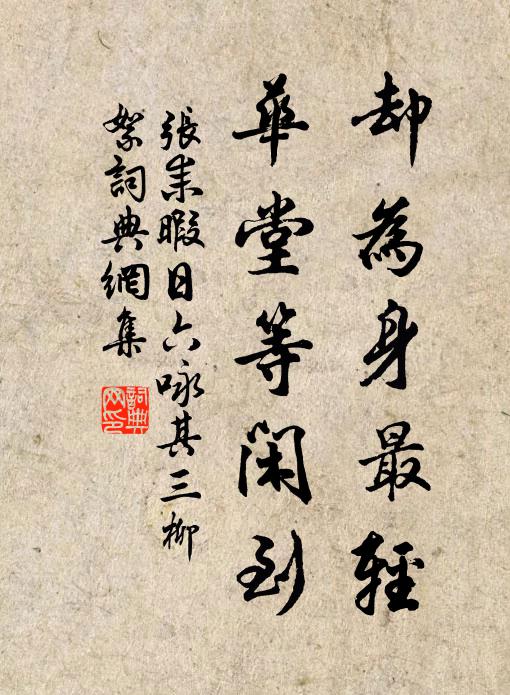 却為身最輕
華堂等閑到
張耒暇日六咏其三柳
絮詞典網集
詞典
网印